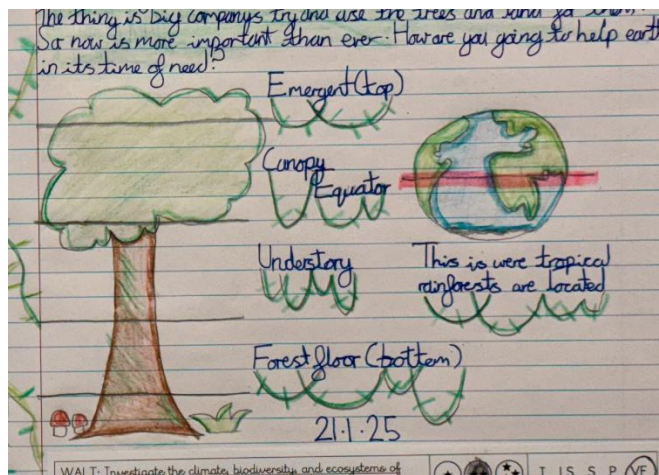 The thing is big companys try and use the trees and land for them.
So now is more important than ever. How are you going to help earth
in its time of need?
Emergent (top)
Canopy
Equator
Understory
This is were tropical
rainforests are located
Forest floor (bottem)
21.1.25
WALT: Investigate the climate, biodiversity, and ecosystems of
T I IS S P VF